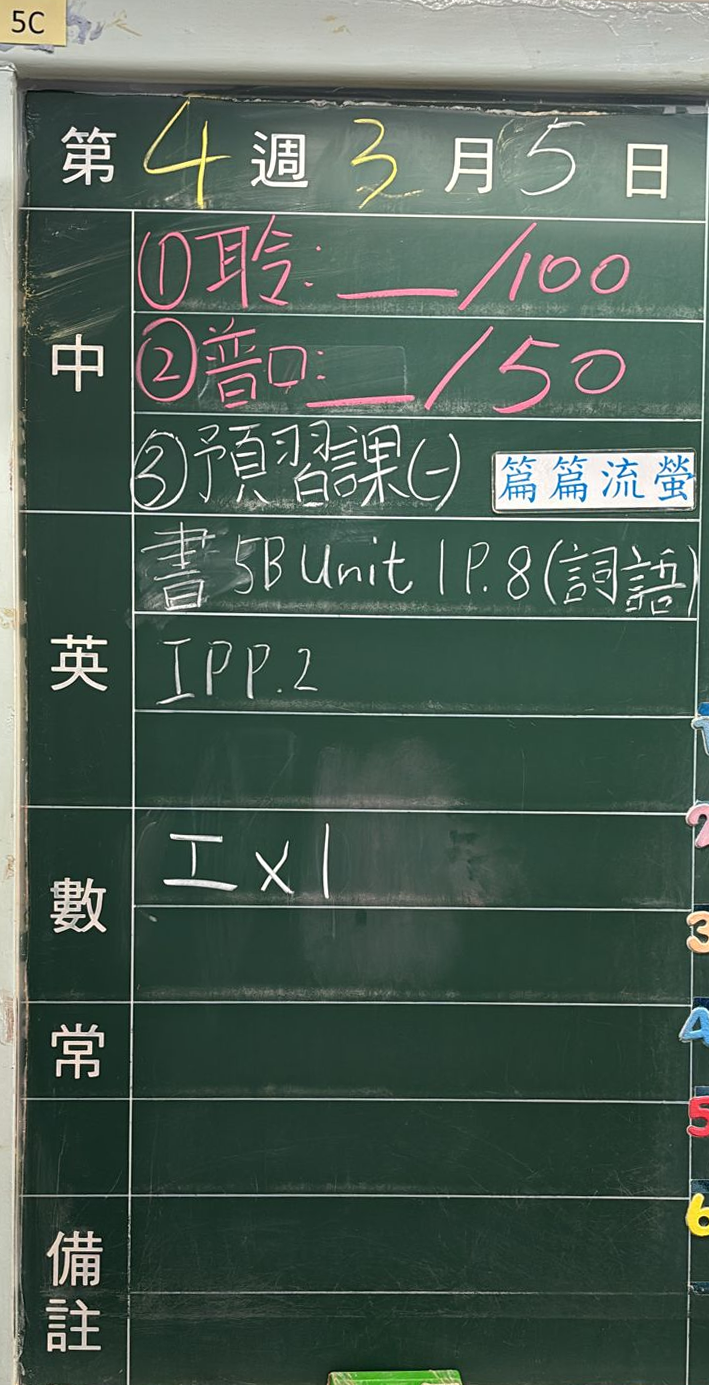 5C
第4週3月5日
中
①聆:__/100
②普口:__/50
③預習課(一) 篇篇流螢
英
書 5B Unit 1 P.8(詞語)
IPP.2
數
工x1
常
備註
1
2
3
4
5
6